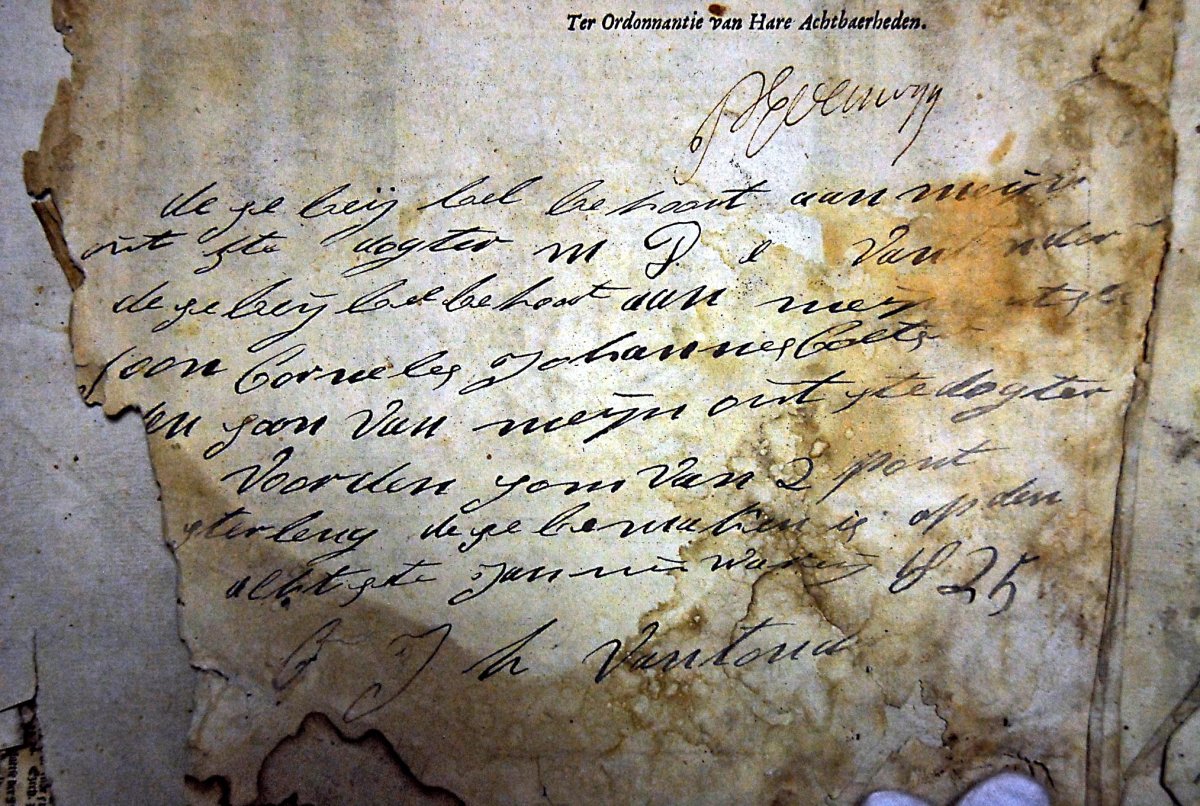 Ter Ordonnantie van Hare Achtbaerheden.
dese beij bel behoort aan meijn
out ste dogter M P e Van
dese beij bel behoort aan meij
soon Corneles Johannes Coets
den soon Van meijn out ste dogter
Voorden som Van 2 pont
sterleng dese bemaken is op den
achtste Jannuewarij 1825
J h Vantond